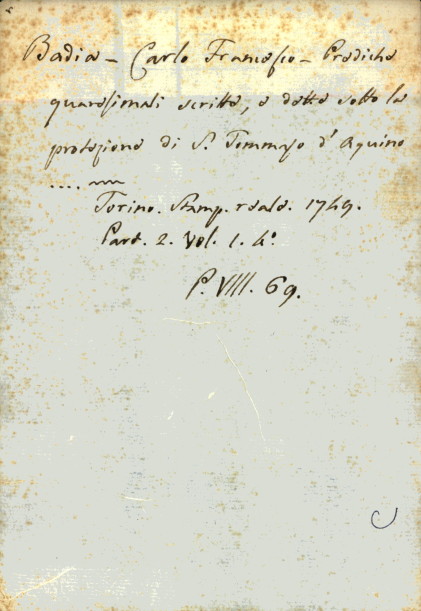 Badia - Carlo Francesco - Prediche
quaresimali scritte, e dette sotto la
protezione di S. Tommaso d'Aquino
....
Torino. Stamp. reale. 1749.
Part. 2. Vol. 1. 4º
P. VIII. 69.